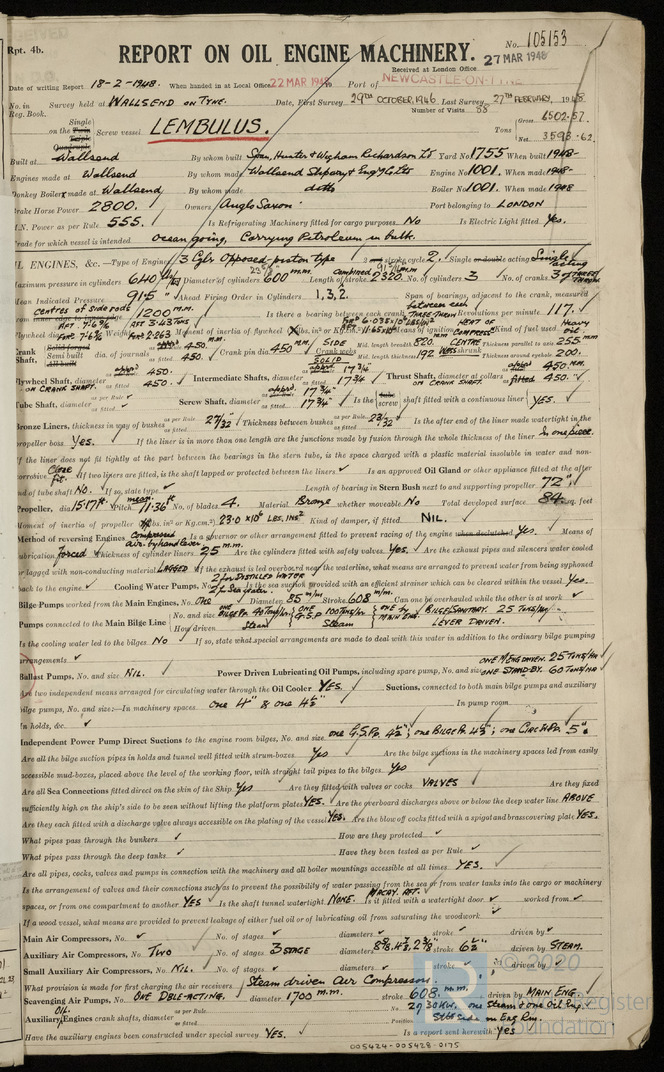 Rpt. 4b.
No. 105153
REPORT ON OIL ENGINE MACHINERY.
27 MAR 1948
Received at London Office
Date of writing Report 18-2-1948. When handed in at Local Office 22 MAR 1948 Port of NEWCASTLE-ON-TYNE
No. in Survey held at WALLSEND ON TYNE. Date, First Survey 29TH OCTOBER, 1946 Last Survey 27TH FEBRUARY, 1948
Reg. Book. Number of Visits 88
Single
on the Twin Screw vessel LEMBULUS. Tons Gross 6502.57
Triple
Quadruple Net 3593.62
Built at Wallsend By whom built Swan, Hunter & Wigham Richardson Ld Yard No. 1755 When built 1948
Engines made at Wallsend By whom made Wallsend Slipway & Eng'g Co Ltd Engine No. 1001. When made 1948
Donkey Boilers made at Wallsend By whom made ditto Boiler No. 1001. When made 1948
Brake Horse Power 2800. Owners Anglo Saxon Port belonging to LONDON
M.N. Power as per Rule 555. Is Refrigerating Machinery fitted for cargo purposes No Is Electric Light fitted Yes.
Trade for which vessel is intended Ocean going, Carrying Petroleum in bulk.
OIL ENGINES, &c.—Type of Engines 3 Cylr Opposed-piston type 2 stroke cycle 2. Single or double acting Single acting
Maximum pressure in cylinders 640 Diameter of cylinders 600 m.m. Length of stroke combined 2320 No. of cylinders 3 No. of cranks 3
Mean Indicated Pressure 91.5 Ahead Firing Order in Cylinders 1, 3, 2. Span of bearings, adjacent to the crank, measured
centres of side rods 1200 mm Is there a bearing between each crank Revolutions per minute 117.
Flywheel dia. Weight Moment of inertia of flywheel Means of ignition HEAT OF COMPRESSION Kind of fuel used Heavy oil
Crank Shaft, Solid forged Semi built All built dia. of journals 450. Crank pin dia. 450 mm Crank webs SIDE Mid. length breadth 820 CENTRE Thickness parallel to axis 255 mm
as fitted 450. SOLID Mid. length thickness 192 shrunk Thickness around eyehole 200.
Flywheel Shaft, diameter as fitted 450. Intermediate Shafts, diameter 17¾ Thrust Shaft, diameter at collars as fitted 450.
ON CRANK SHAFT. ON CRANK SHAFT.
Tube Shaft, diameter Screw Shaft, diameter as fitted 17¾ Is the tube screw shaft fitted with a continuous liner YES.
Bronze Liners, thickness in way of bushes 27/32 Thickness between bushes 23/32 Is the after end of the liner made watertight in the
propeller boss Yes. If the liner is in more than one length are the junctions made by fusion through the whole thickness of the liner In one piece.
If the liner does not fit tightly at the part between the bearings in the stern tube, is the space charged with a plastic material insoluble in water and non-
corrosive Close fit. If two liners are fitted, is the shaft lapped or protected between the liners ✓ Is an approved Oil Gland or other appliance fitted at the after
end of tube shaft No. If so, state type ✓ Length of bearing in Stern Bush next to and supporting propeller 72"
Propeller, dia 15.17 ft. Pitch mean 11.36 ft No. of blades 4. Material Bronze whether moveable No Total developed surface 84 sq. feet
Moment of inertia of propeller (lbs. in² or Kg.cm.²) 23.0 x 10⁶ LBS, INS² Kind of damper, if fitted NIL.
Method of reversing Engines Compressed air Is a governor or other arrangement fitted to prevent racing of the engine when declutched Yes. Means of
lubrication forced Thickness of cylinder liners 25 m.m. Are the cylinders fitted with safety valves Yes. Are the exhaust pipes and silencers water cooled
or lagged with non-conducting material LAGGED If the exhaust is led overboard near the waterline, what means are arranged to prevent water from being syphoned
back to the engine ✓ Cooling Water Pumps, No. 2 for DISTILLED WATER 2 for Sea water Is the sea suction provided with an efficient strainer which can be cleared within the vessel Yes.
Bilge Pumps worked from the Main Engines, No. One Diameter 85 m/m Stroke 608 m/m Can one be overhauled while the other is at work ✓
Pumps connected to the Main Bilge Line No. and size ONE BILGE Pp. 40 Tons/hr ONE G.S.P 100 TONS/hr ONE by MAIN ENG. BILGE/SANITARY. 25 TONS/hr
How driven Steam Steam LEVER DRIVEN.
Is the cooling water led to the bilges No If so, state what special arrangements are made to deal with this water in addition to the ordinary bilge pumping
arrangements ✓
Ballast Pumps, No. and size NIL. Power Driven Lubricating Oil Pumps, including spare pump, No. and size ONE M/ENG DRIVEN. 25 TONS/HR ONE STAND-BY. 60 TONS/HR
Are two independent means arranged for circulating water through the Oil Cooler YES. Suctions, connected to both main bilge pumps and auxiliary
bilge pumps, No. and size:—In machinery spaces one 4" & one 4½" In pump room
In holds, &c. ✓
Independent Power Pump Direct Suctions to the engine room bilges, No. and size one G.S.Pp. 4½"; one Bilge Pp. 4½"; one Circ'g Pp. 5".
Are all the bilge suction pipes in holds and tunnel well fitted with strum-boxes. Yes Are the bilge suctions in the machinery spaces led from easily
accessible mud-boxes, placed above the level of the working floor, with straight tail pipes to the bilges. Yes
Are all Sea Connections fitted direct on the skin of the Ship Yes Are they fitted with valves or cocks VALVES Are they fixed
sufficiently high on the ship's side to be seen without lifting the platform plates YES. Are the overboard discharges above or below the deep water line ABOVE
Are they each fitted with a discharge valve always accessible on the plating of the vessel YES. Are the blow off cocks fitted with a spigot and brass covering plate YES.
What pipes pass through the bunkers ✓ How are they protected ✓
What pipes pass through the deep tanks ✓ Have they been tested as per Rule ✓
Are all pipes, cocks, valves and pumps in connection with the machinery and all boiler mountings accessible at all times YES.
Is the arrangement of valves and their connections such as to prevent the possibility of water passing from the sea or from water tanks into the cargo or machinery
spaces, or from one compartment to another YES Is the shaft tunnel watertight NONE. MACHY. AFT. Is it fitted with a watertight door ✓ worked from ✓
If a wood vessel, what means are provided to prevent leakage of either fuel oil or of lubricating oil from saturating the woodwork ✓
Main Air Compressors, No. ✓ No. of stages ✓ diameters ✓ stroke ✓ driven by ✓
Auxiliary Air Compressors, No. TWO No. of stages 3 STAGE diameters stroke 6½" driven by STEAM.
Small Auxiliary Air Compressors, No. NIL. No. of stages ✓ diameters ✓ stroke ✓ driven by ✓
What provision is made for first charging the air receivers Steam driven Air Compressor.
Scavenging Air Pumps, No. ONE DBLE-ACTING. diameter 1700 m.m. stroke 608 m.m. driven by MAIN ENG.
Auxiliary OIL Engines crank shafts, diameter as per Rule as fitted No. Position one Steam & one Oil
Have the auxiliary engines been constructed under special survey YES. Is a report sent herewith Yes
© 2020
Lloyd's Register
Foundation
005424-005428-0175